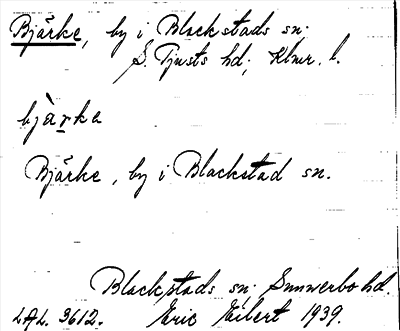 Bjärke, by i Blackstads sn.
S. Tjusts hd, Klmr. l.
bjàrka
Bjärke, by i Blackstad sn.
Blackstads sn. Sunnerbo hd.
LAL. 3612. Eric Elbert 1939.